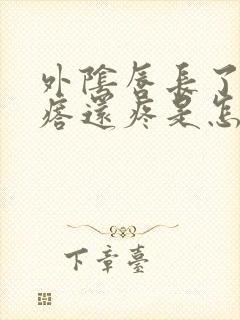 外陰唇長了
痞還疼是怎
下章臺